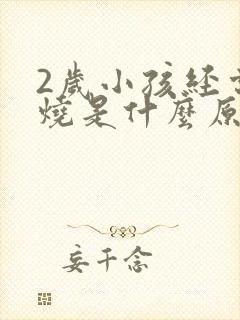 2歲小孩經
燒是什麼原
妄千念